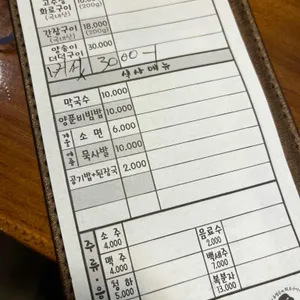 고추장 10.000
화로구이 (200g)
(국내산)
간장구이 18.000
(국내산) (200g)
양송이 30.000
더덕구이
30004
식사메뉴
막국수 10.000
양푼비빔밥 10.000
소면 6.000
묵사발 10.000
공기밥+된장국 2.000
주류·음
소주 4.000
음료수 2.000
맥주 4.000
백세주 7.000
청하 5.000
복분자 13.000